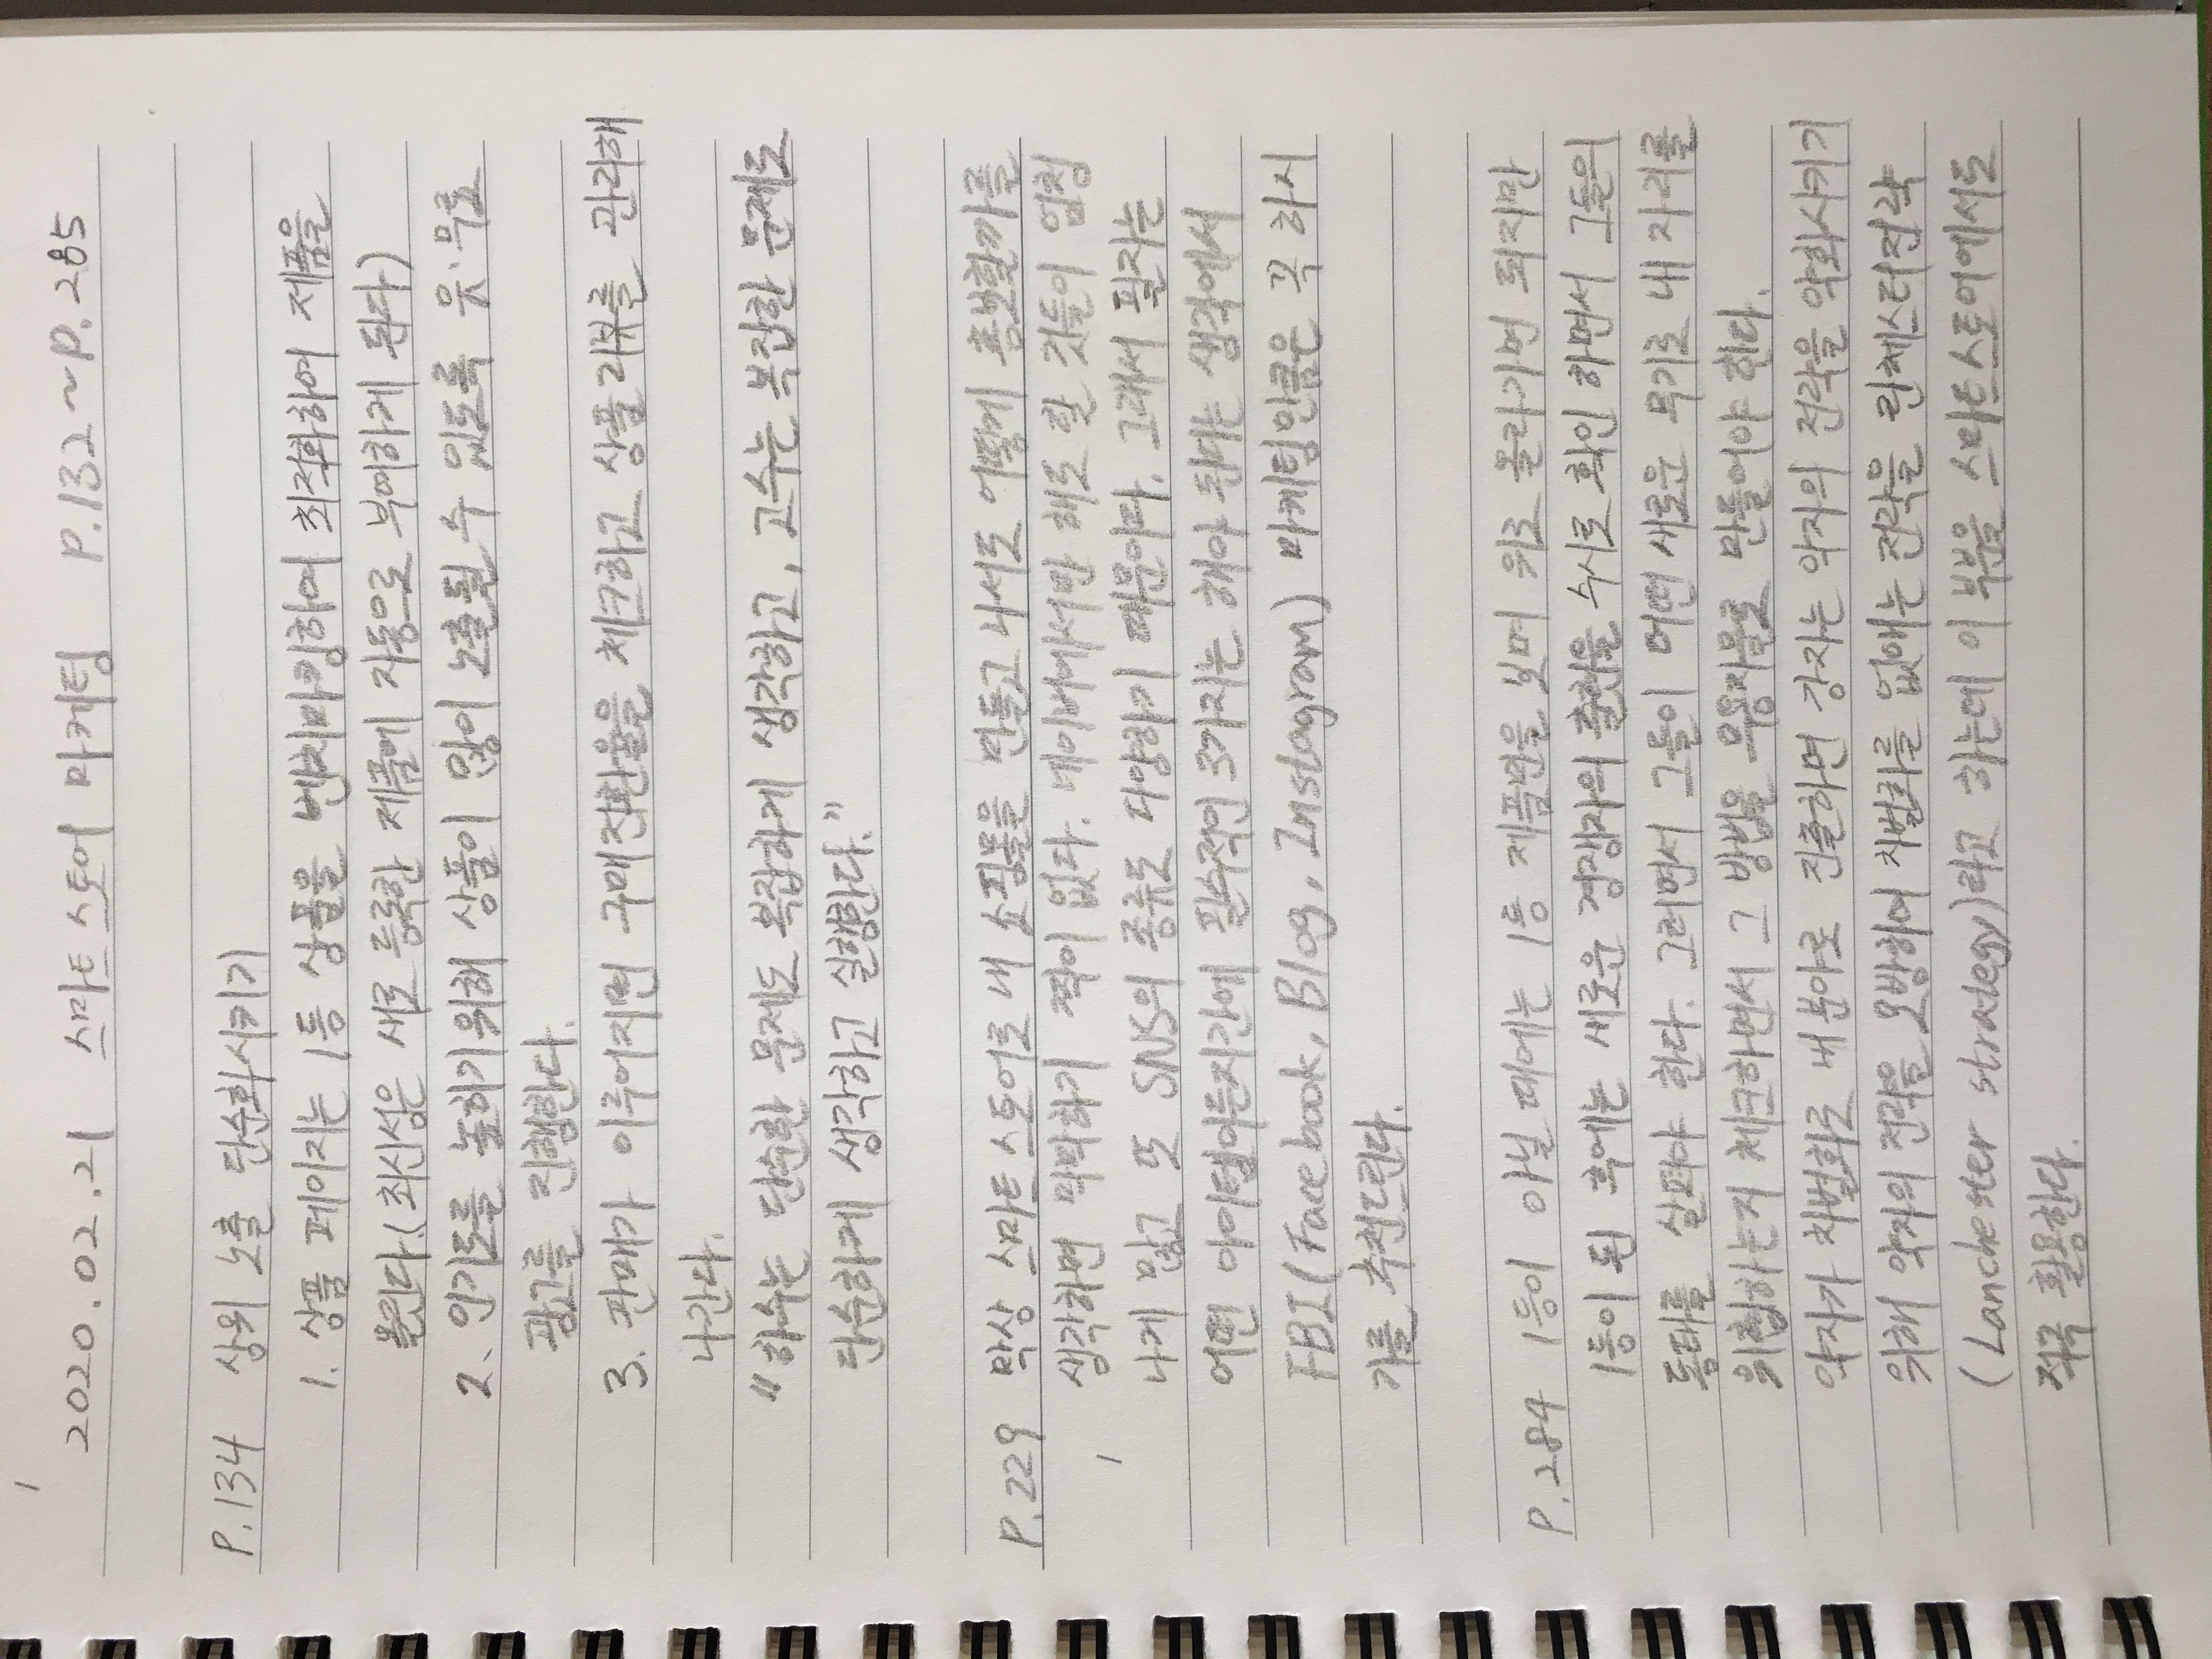 2020.02.21 스마트 스토어 마케팅 P.132 ~ P.285
P.134 상위 노출 단순화시키기
1. 상품 페이지는 1등 상품을 벤치마킹하여 최적화하여 제품을
올린다.(최신성은 새로 등록한 제품에 자동으로 부여하게 된다)
2. 인기도를 높히기 위해 상품이 많이 노출될 수 있도록 유·무료
광고를 진행한다.
3. 판매가 이루어지면 구매전환율을 체크하고 상품 리뷰를 관리해
나간다.
"하수는 단순한 문제도 복잡하게 생각하고, 고수는 복잡한 문제도
단순하게 생각하고 실행한다."
P.229 막상 스마트 스토어로 내 쇼핑몰을 만들고 나서도 어떻게 홍보할까를
생각하면 막막하기 짝이 없다. 네이버에서만 해도 할 것들이 엄청
나게 많고 또 SNS의 종류도 다양하기 때문이다. 그래서 필자는
어떤 아이템이든지간에 필수적인 3가지는 해야 된다는 생각에서
FBI(Facebook, Blog, Instagram) 마케팅만큼은 꼭 하시
기를 추천드린다.
P.284 1등이 아닐 때에는 1등 제품만을 보며 위로 올라가면 되지만
1등이 된 후에는 새로운 경쟁자의 출현을 수시로 확인 하면서 그들의
동태를 살펴야 한다. 그러면서 그들이 어떤 새로운 무기로 내 자리를
위협하는지 체크하면서 그 방법을 무용지물로 만들어야 한다.
약자가 차별화로 내 분야로 진출하면 강자는 약자의 전략을 약화시키기
위해 약자의 전략을 모방하여 차별화를 없애는 전략을 란체스터전략
(Lanchester strategy)라고 하는데 이 부분을 스마트스토어에서도
적극 활용한다.